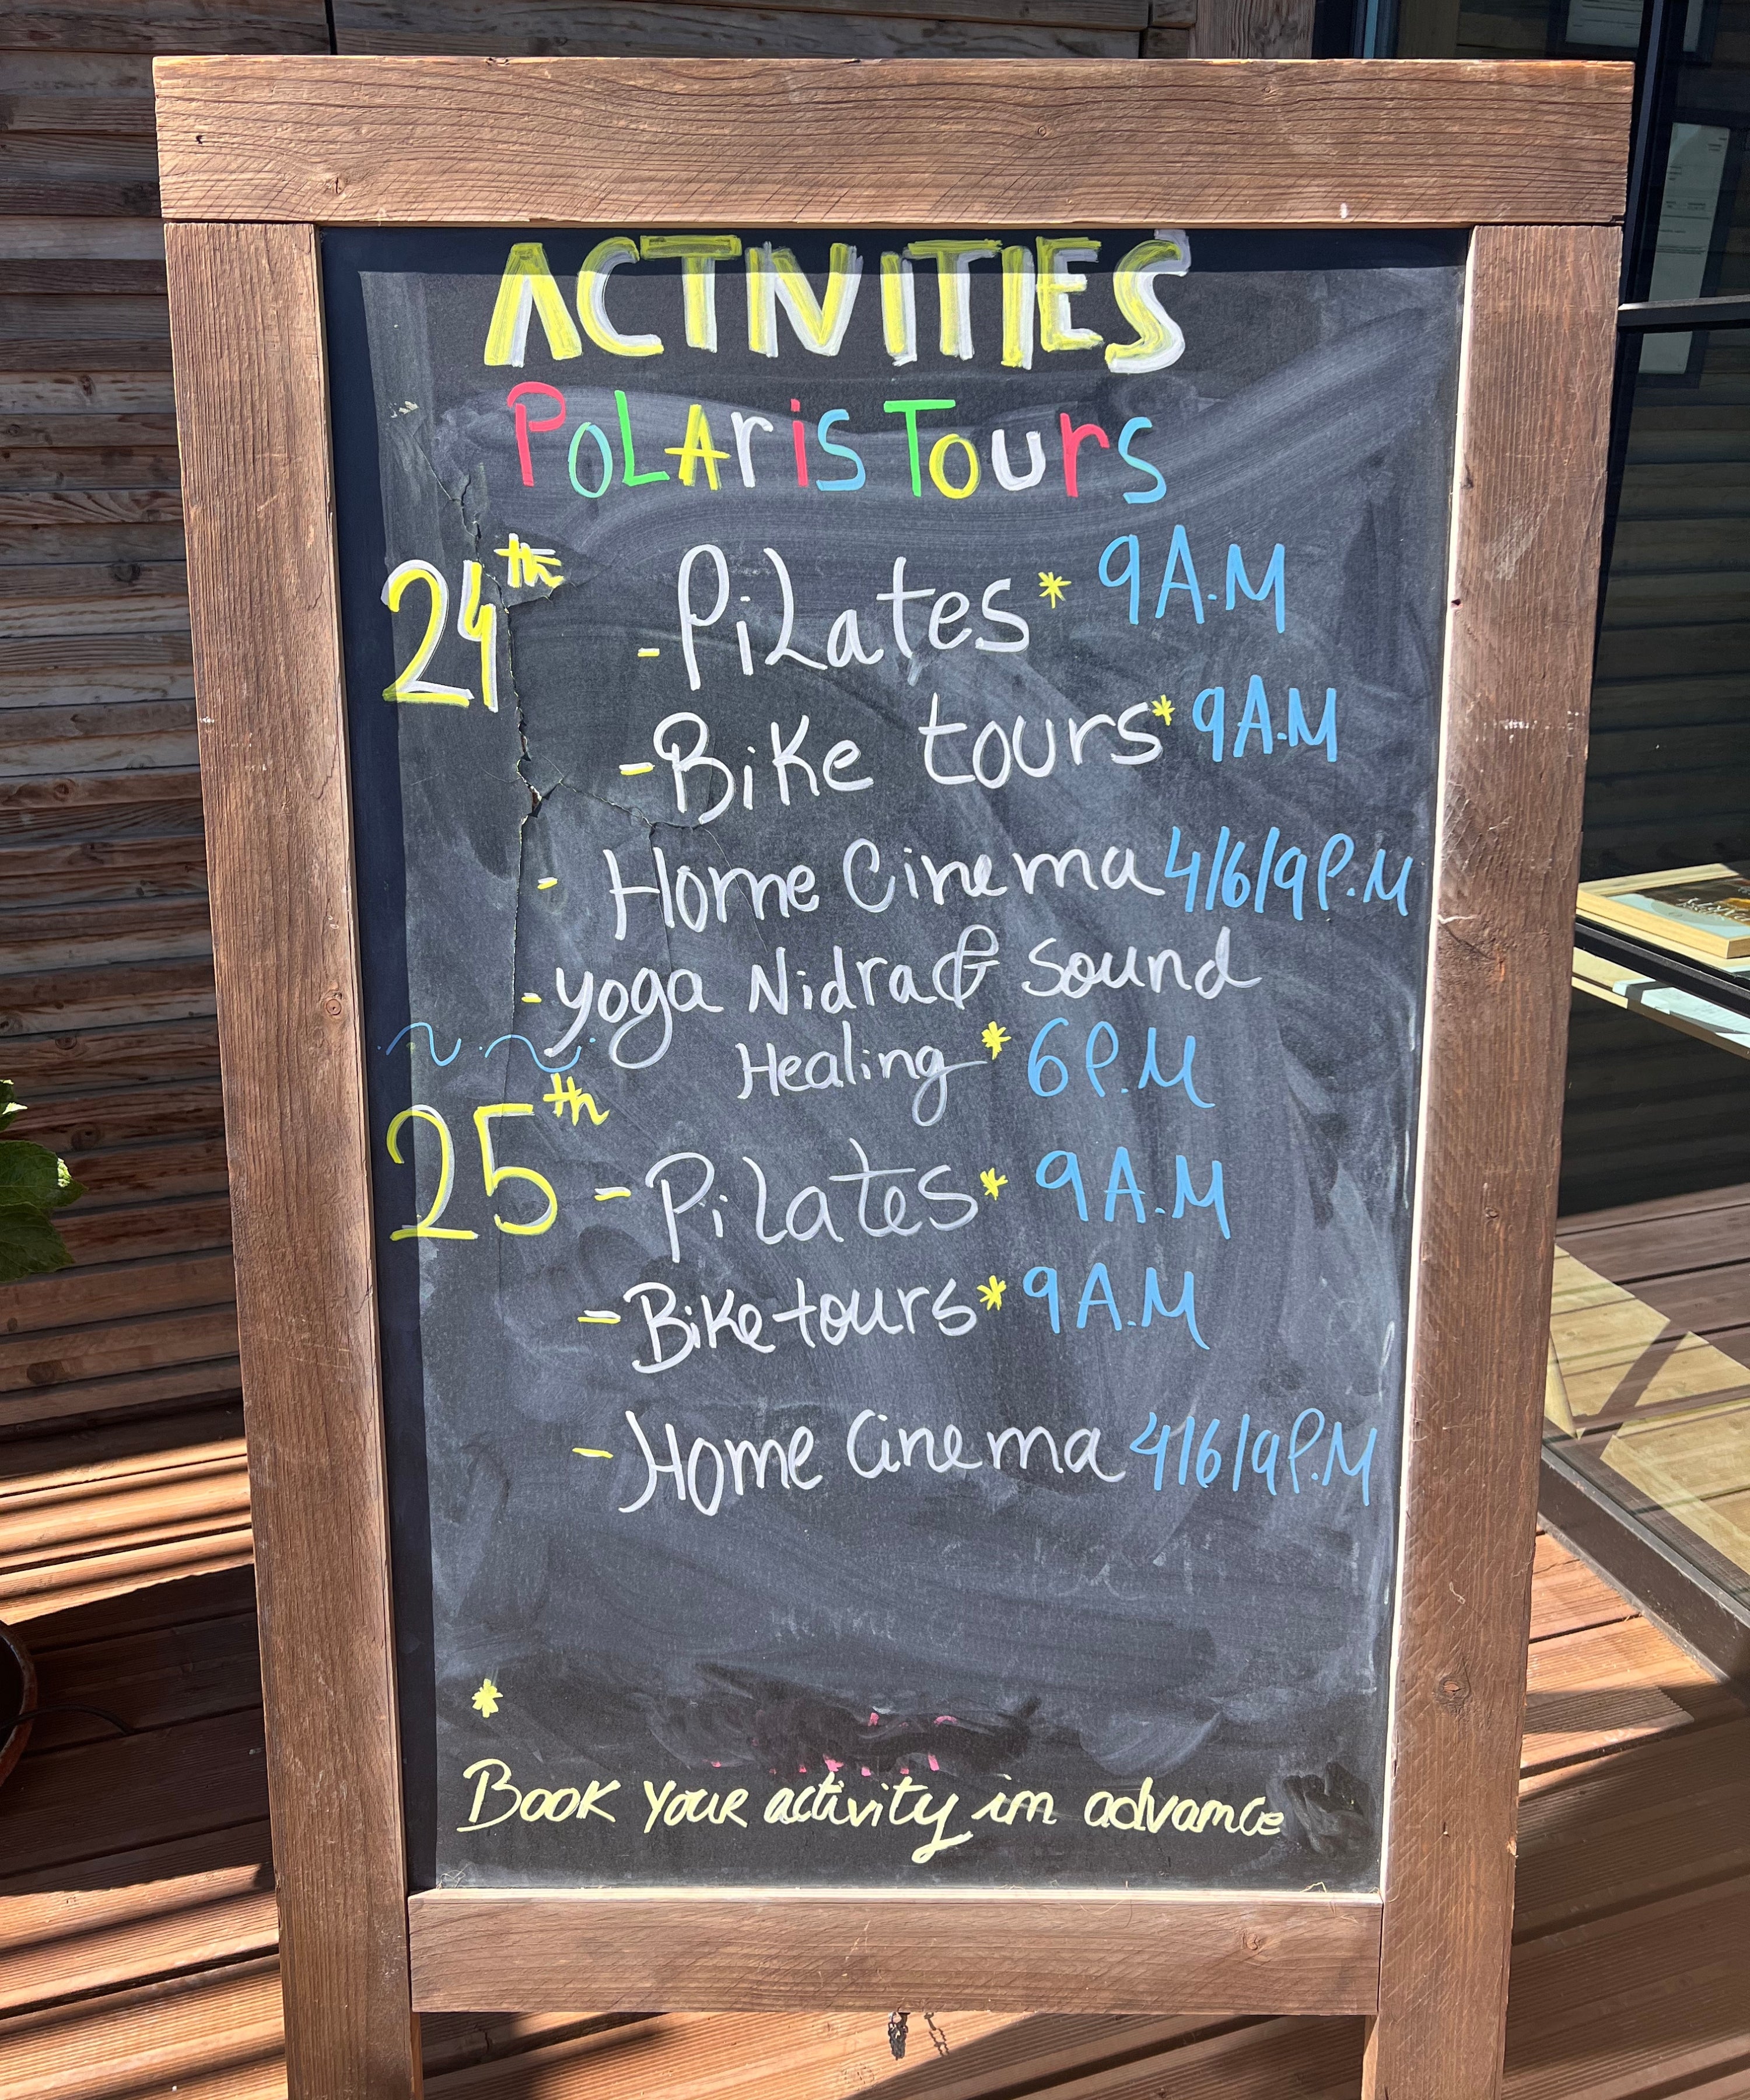 ACTIVITIES
POLAris Tours
24th - PiLates* 9A.M
- BiKe tours* 9A.M
- Home Cinema 4/6/9P.M
- yoga Nidra & Sound
Healing* 6P.M
25th - PiLates* 9A.M
- BiKe tours* 9A.M
- Home Cinema 4/6/9P.M
*
Book your activity in advance